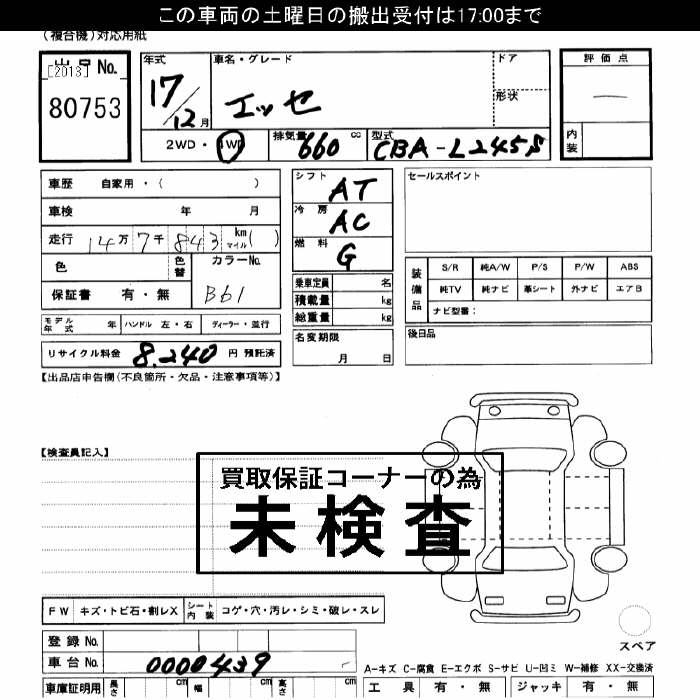 この車両の土曜日の搬出受付は17:00まで
(複合機)対応用紙
[2013] No.
80753
年式
17/12月
車名・グレード
エッセ
ドア
形状
評価点
内装
2WD・4WD
排気量 660 cc
型式 CBA-L245S
車歴 自家用・( )
車検 年 月
走行 14万7千843 km マイル ( )
色 色替 カラーNo.
B61
保証書 有・無
モデル年式 年 ハンドル 左・右 ディーラー・並行
リサイクル料金 8,240 円 預託済
シフト AT
冷房 AC
燃料 G
乗車定員 名
積載量 kg
総重量 kg
名変期限
月 日
セールスポイント
装備品
S/R 純A/W P/S P/W ABS
純TV 純ナビ 革シート 外ナビ エアB
ナビ型番:
後日品
【出品店申告欄(不良箇所・欠品・注意事項等)】
【検査員記入】
買取保証コーナーの為
未検査
FW キズ・トビ石・割レX シート内装 コゲ・穴・汚レ・シミ・破レ・スレ
登録No.
車台No. 0000439
車庫証明用 長さ cm 幅 cm 高さ cm
スペア
A-キズ C-腐食 E-エクボ S-サビ U-凹ミ W-補修 XX-交換済
工具 有・無 ジャッキ 有・無